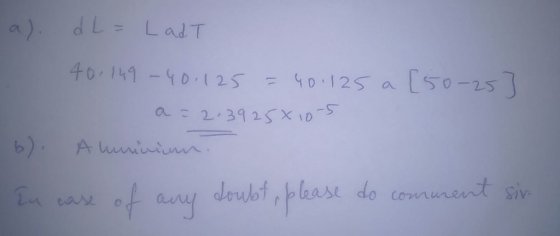 a). dL = L a d T
40.149 - 40.125 = 40.125 a [50-25]
a = 2.3925 × 10⁻⁵
b). Aluminium.
In case of any doubt, please do comment sir.